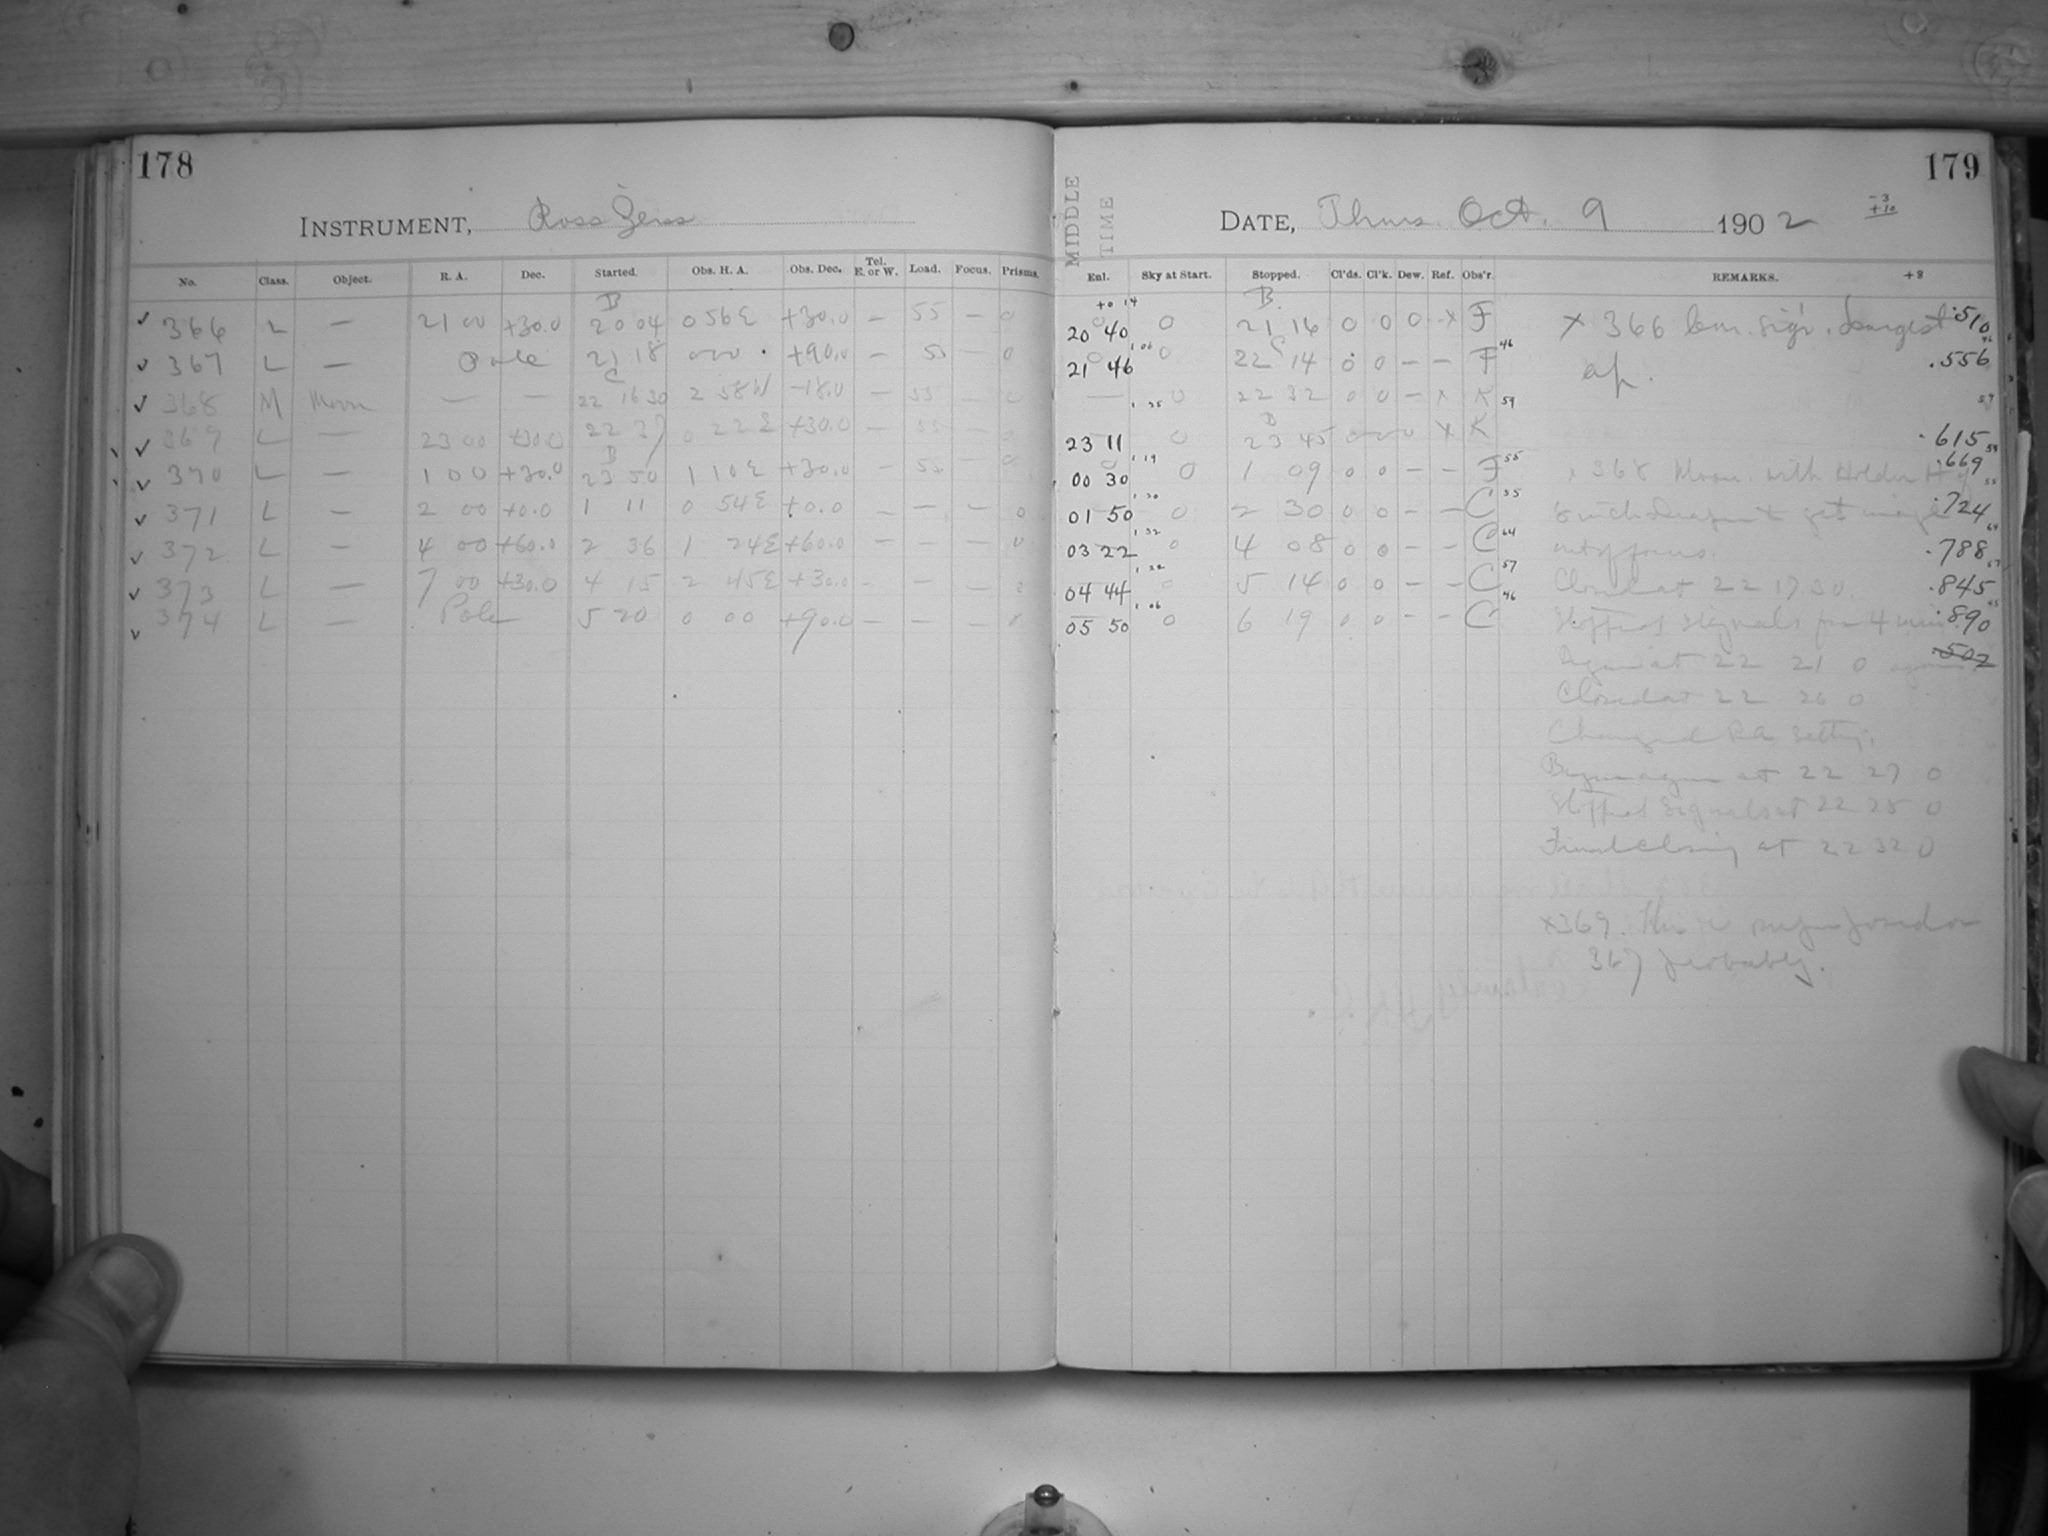 178
INSTRUMENT, Ross Zeiss
No. Class. Object. R. A. Dec. Started. Obs. H. A. Obs. Dec. Tel. E. or W. Load. Focus. Prisms.
366 L — 21 00 +30.0 B 20 04 0 56 E +30.0 — 55 — 0
367 L — Pole 21 18 0 00 +90.0 — 55 — 0
368 M Moon — — C 22 16 30 2 58 W -18.0 — 55 — 0
369 L — 23 00 +30.0 22 37 0 22 E +30.0 — 55 — 0
370 L — 1 00 +30.0 B 23 50 1 10 E +30.0 — 55 — 0
371 L — 2 00 +0.0 1 11 0 54 E +0.0 — — — 0
372 L — 4 00 +60.0 2 36 1 24 E +60.0 — — — 0
373 L — 7 00 +30.0 4 15 2 45 E +30.0 — — — 0
374 L — Pole 5 20 0 00 +90.0 — — —
179
MIDDLE TIME
DATE, Thurs. Oct. 9 1902
-3
+10
Enl. Sky at Start. Stopped. Cl'ds. Cl'k. Dew. Ref. Obs'r. REMARKS. +8
+0 14
20 40 0 B. 21 16 0 0 0 x F x 366 Com. sigs. Largest .510
21 46 1 06 0 C 22 14 0 0 — — F 46 ap. .556
— 0 22 32 0 0 — x K 59
23 11 1 25 0 B 23 45 0 0 0 x K .615
00 30 1 19 0 1 09 0 0 — — F 55 x 368 Moon with Holder H .669
01 50 1 20 0 2 30 0 0 — — C 55 get image .724
03 22 1 32 0 4 08 0 0 — — C 64 out of focus. .788
04 44 1 22 0 5 14 0 0 — — C 57 Closed at 22 17 30. .845
05 50 1 06 0 6 19 0 0 — — C 46 Stopped signals for 4 min. .890
Began at 22 21 0 .502
Closed at 22 26 0
Changed R.A. setting.
Began again at 22 27 0
Stopped Signals at 22 28 0
Final closing at 22 32 0
x369. This is superposed on
367 probably.